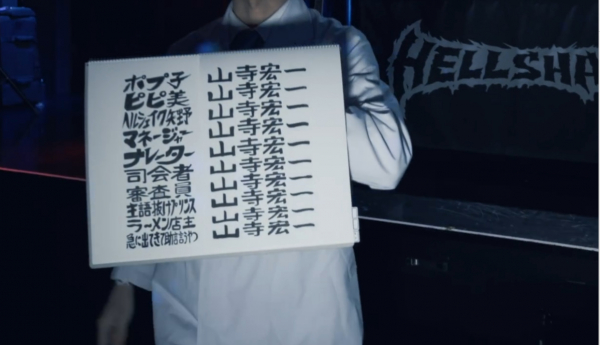 HELLSHA
ポプ子 山寺宏一
ピピ美 山寺宏一
ヘルシェイク矢野 山寺宏一
マネージャー 山寺宏一
ナレーター 山寺宏一
司会者 山寺宏一
審査員 山寺宏一
主語抜けプリンス 山寺宏一
ラーメン店主 山寺宏一
急に出てきて やつ 山寺宏一